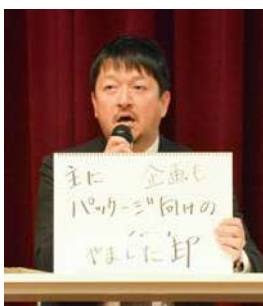 主に 企画も
パッケージ向けの
やました印